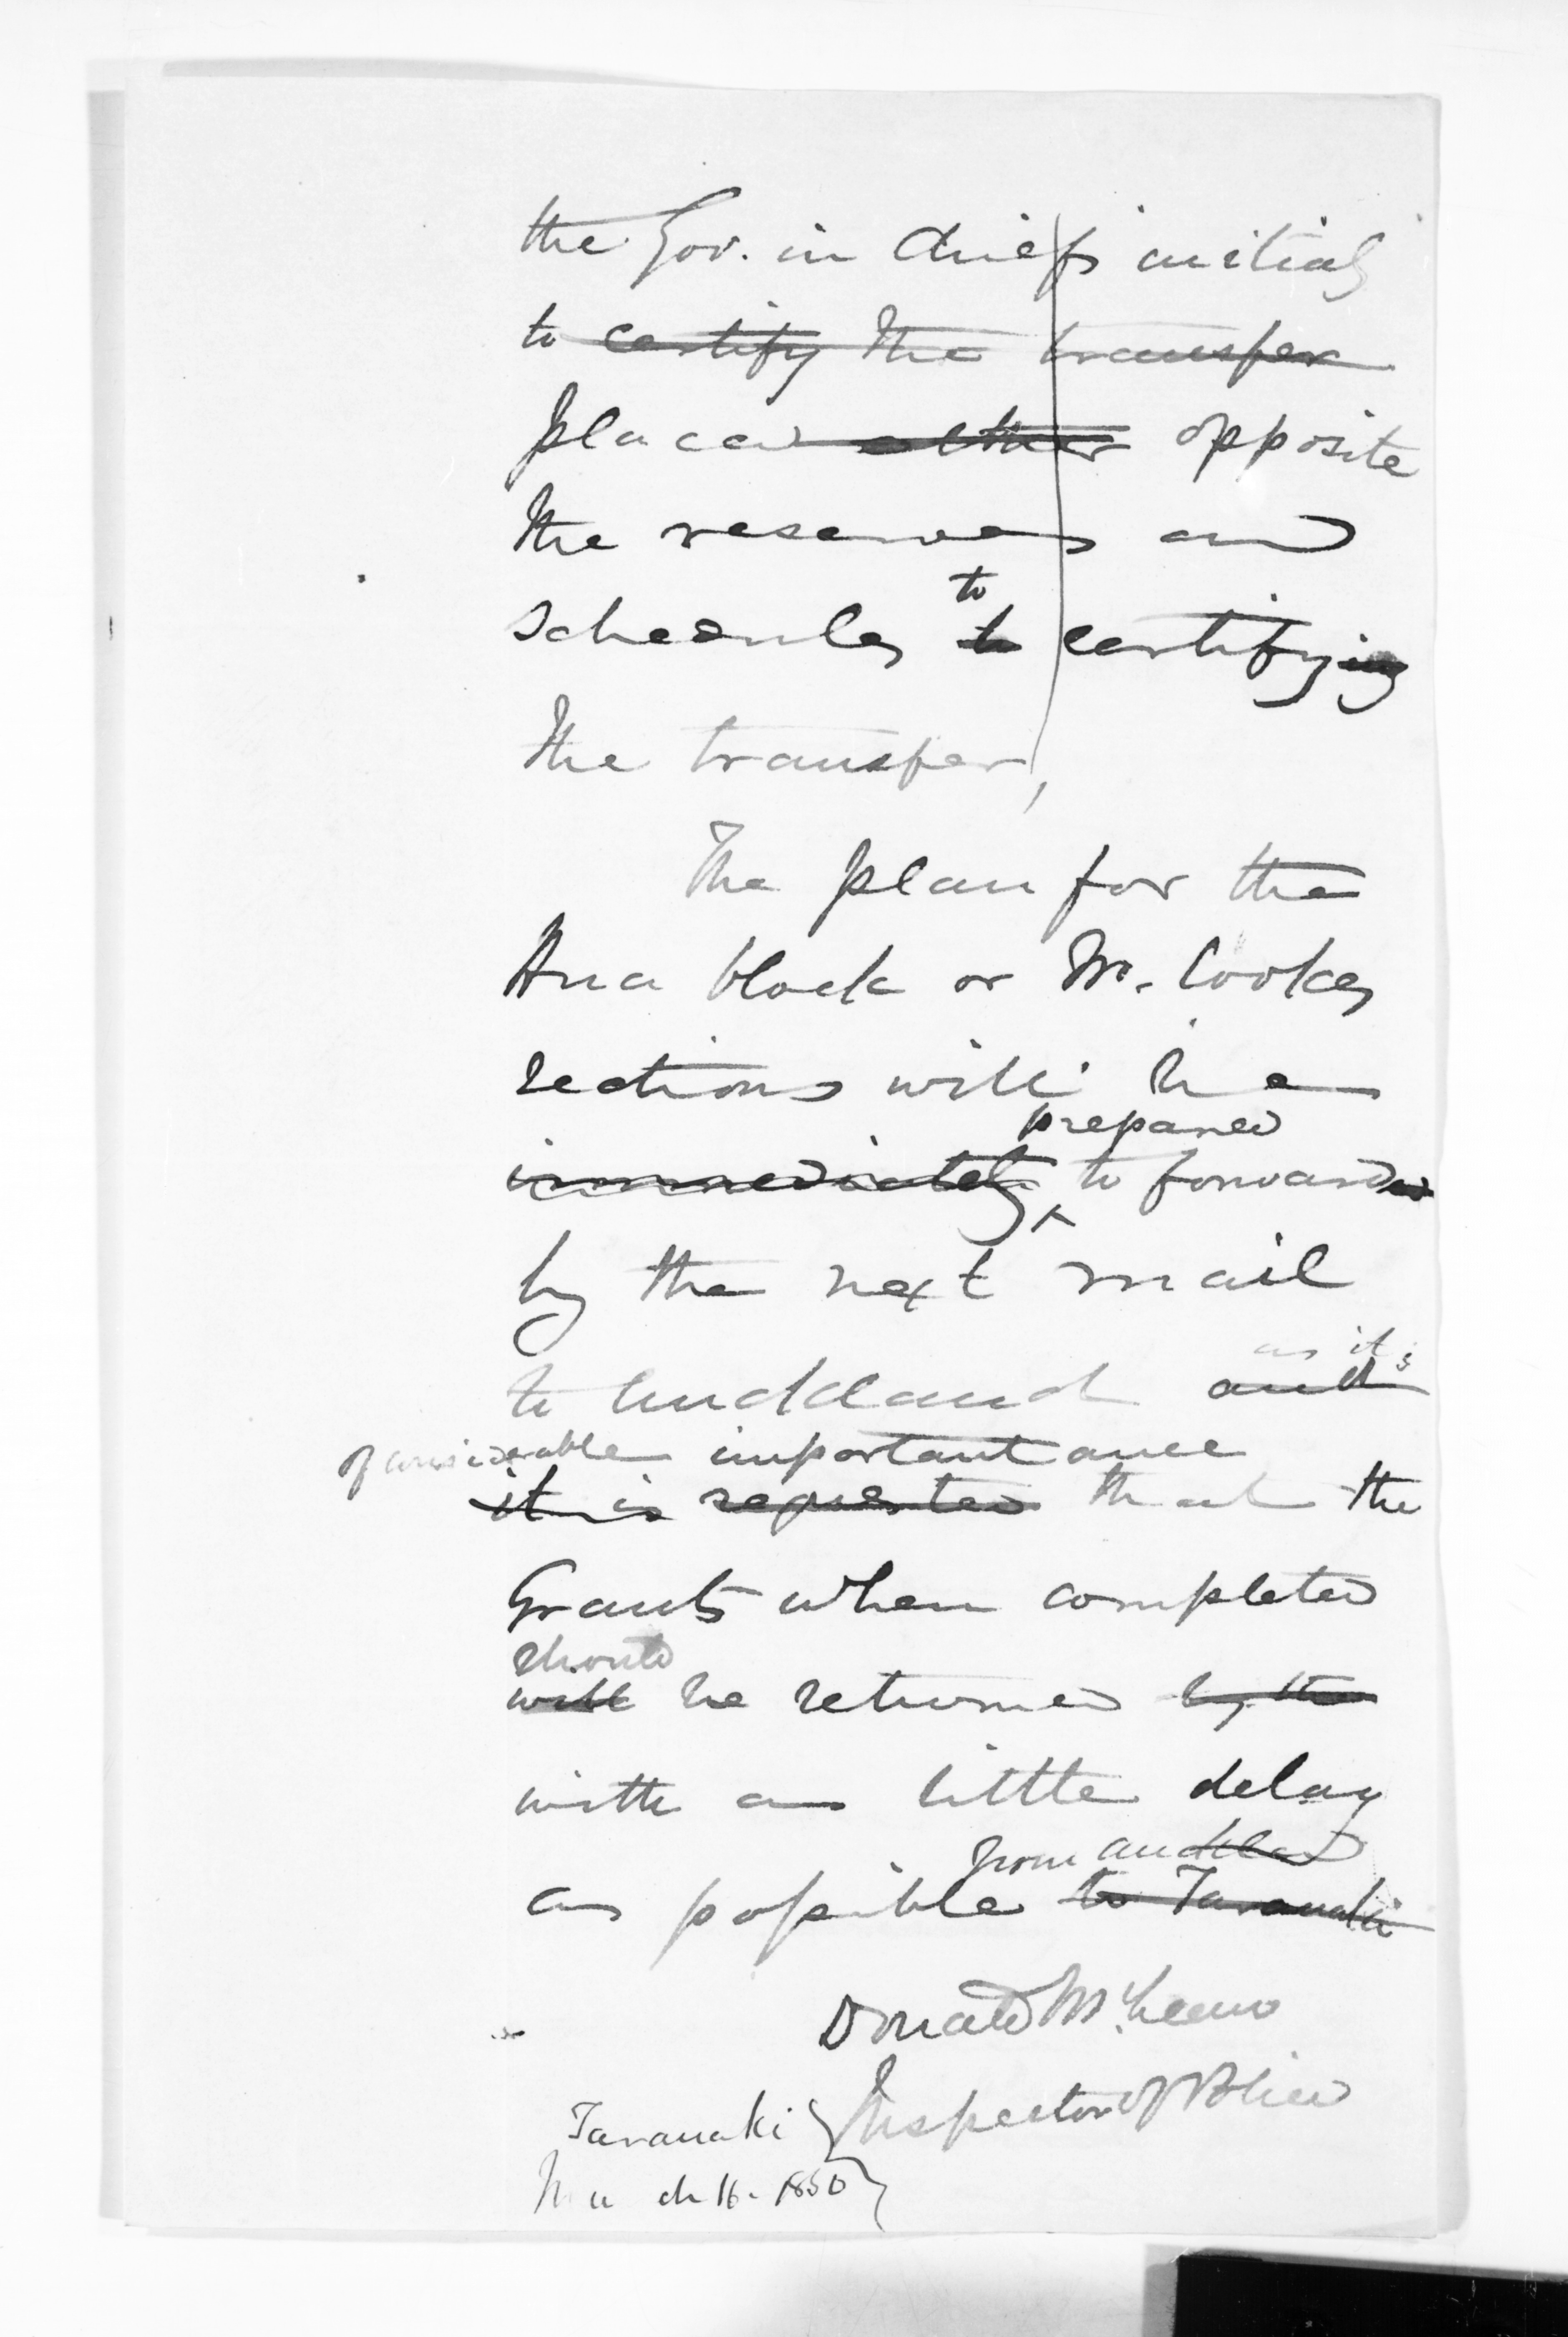 the Gov. in chiefs initials
to certify the transfer
placed either opposite
the reserves and
to
schedules to certifying
the transfer,
The plan for the
Hua block or Mr. Cookes
sections will be
prepared
immediately to forwarded
by the next mail
as its
to Auckland and
of considerable importantance
it is requested that the
Grants when completed
should
will be returned by the
with as little delay
from Auckland
as possible to Taranaki
Donald McLean
Inspector of Police
Taranaki
March 16. 1850